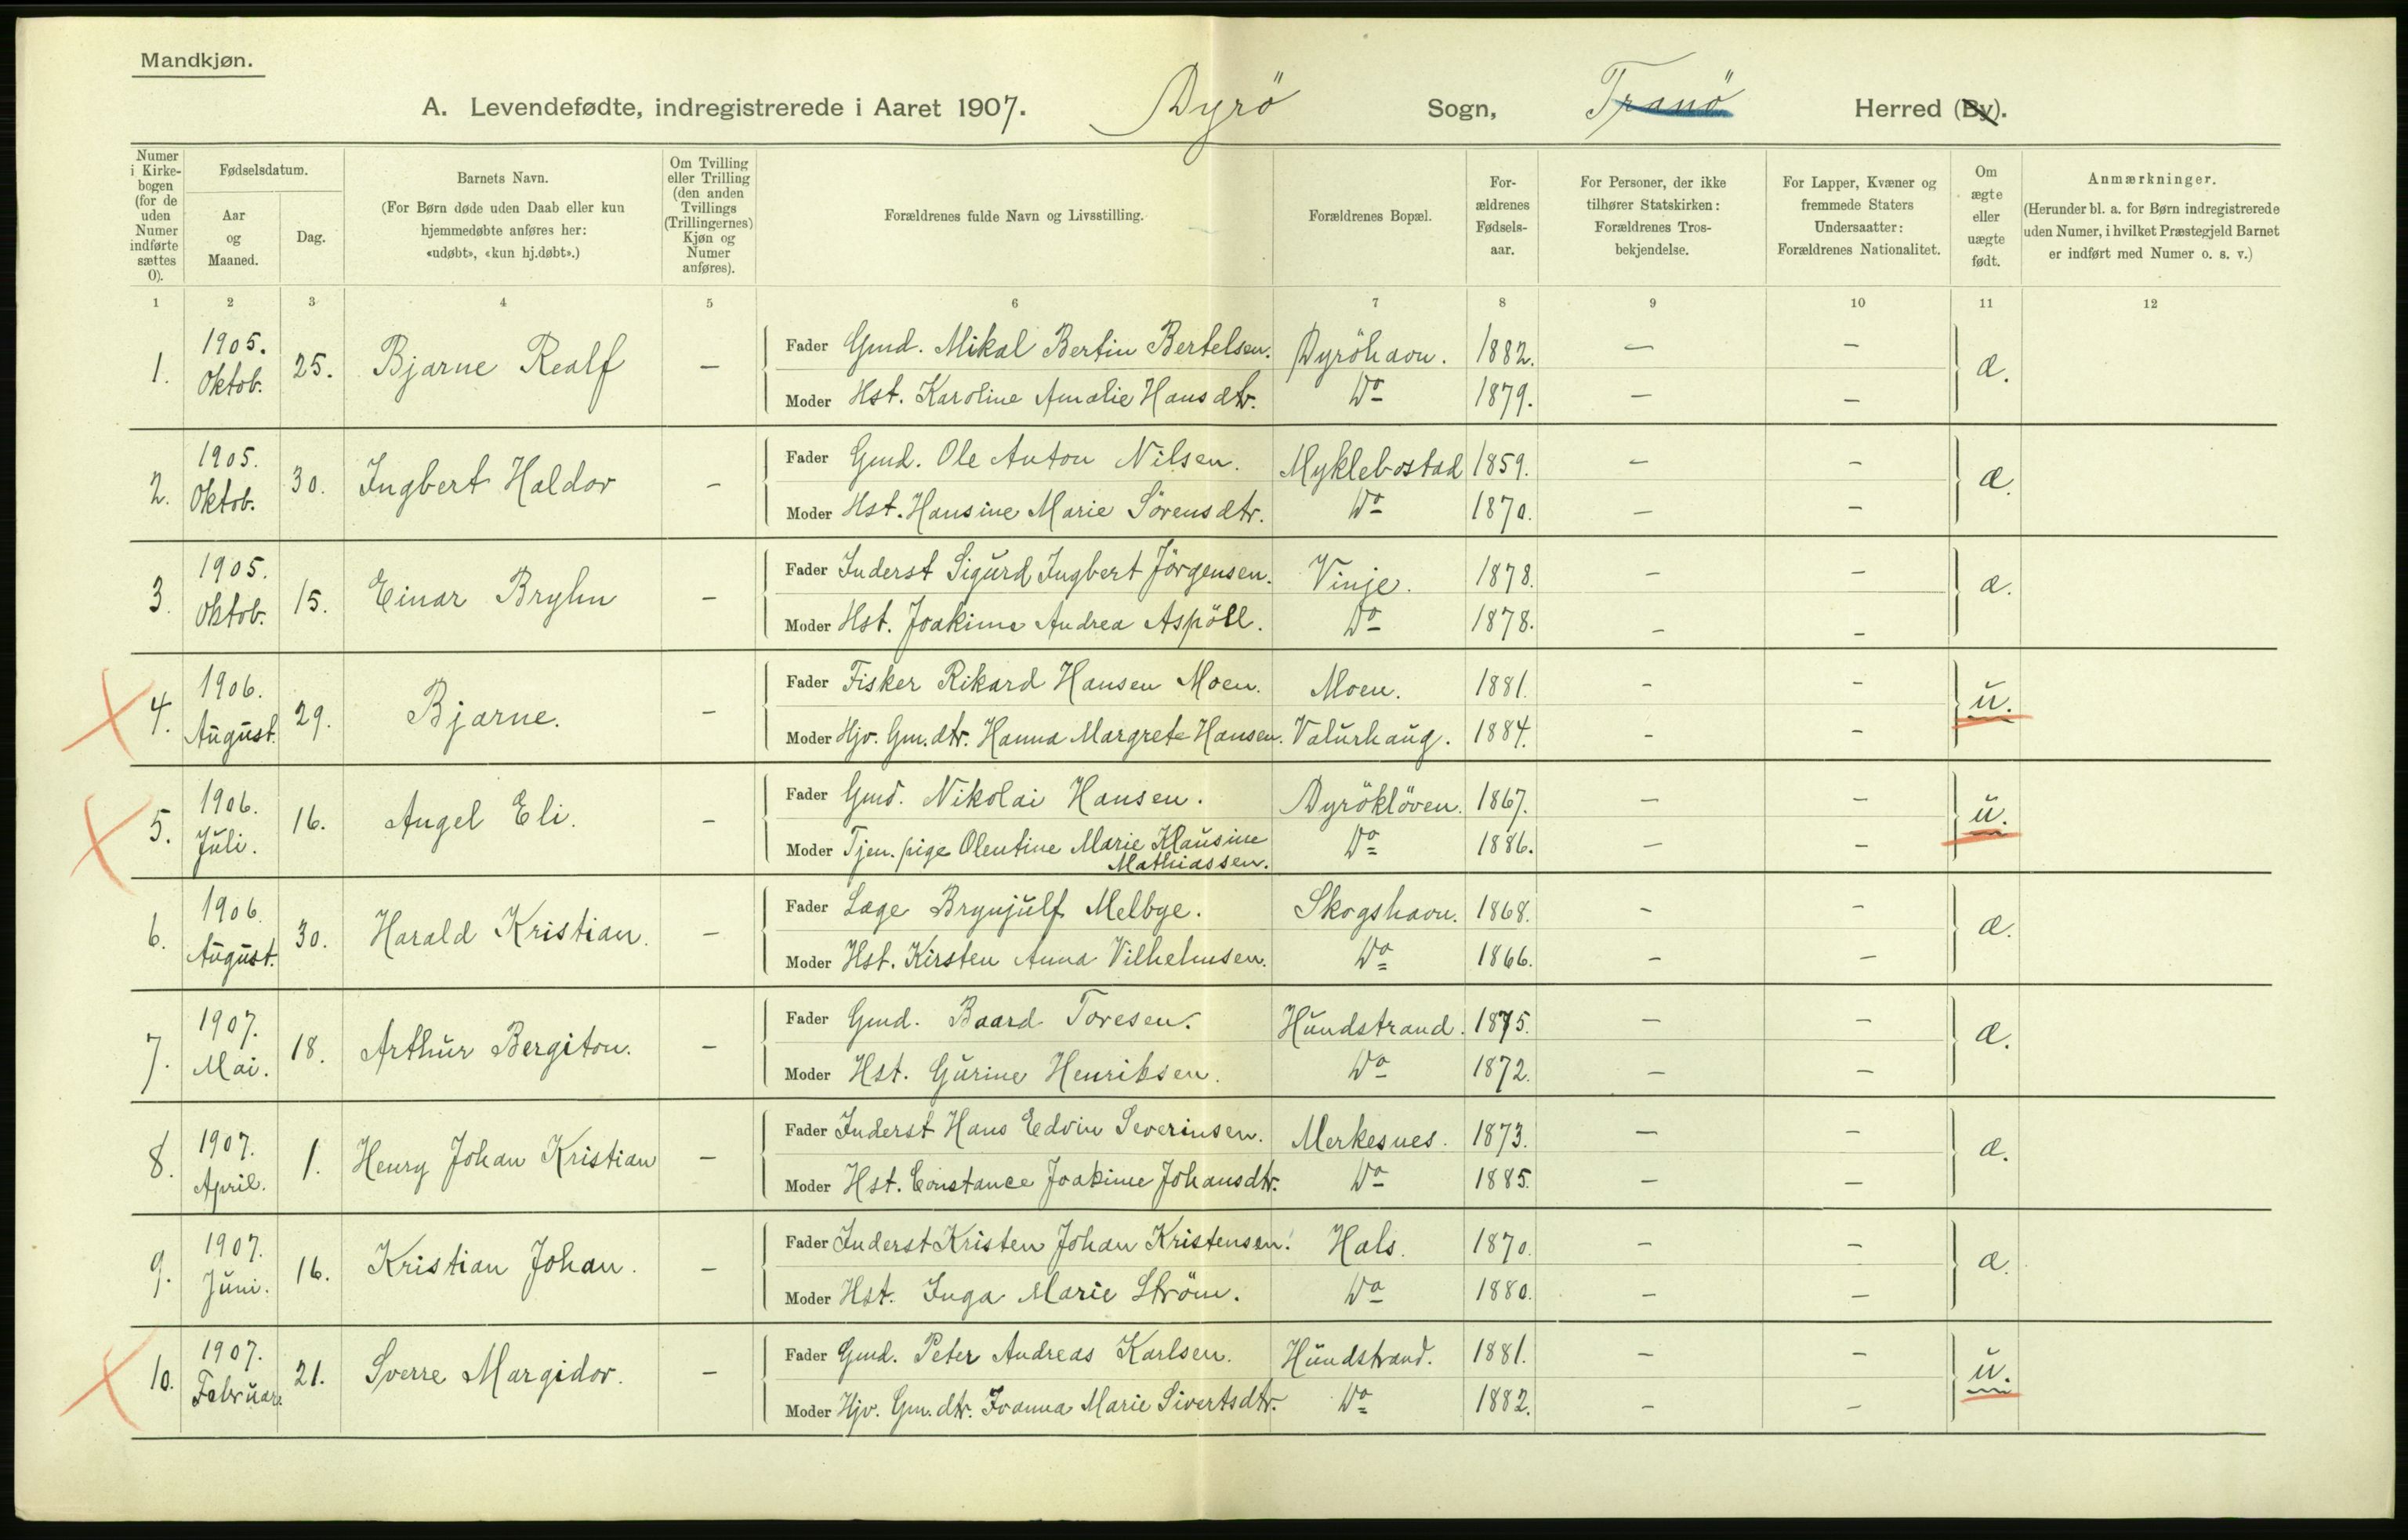 Mandkjøn.
A. Levendefødte, indregistrerede i Aaret 1907. Dyrö Sogn, Tranö Herred (By).
Numer i Kirkebogen (for de uden Numer indførte sættes 0).
Fødselsdatum.
Aar og Maaned.
Dag.
Barnets Navn.
(For Børn døde uden Daab eller kun hjemmedøbte anføres her: «udøbt», «kun hj.døbt».)
Om Tvilling eller Trilling (den anden Tvillings (Trillingernes) Kjøn og Numer anføres).
Forældrenes fulde Navn og Livsstilling.
Forældrenes Bopæl.
For-ældrenes Fødsels-aar.
For Personer, der ikke tilhører Statskirken: Forældrenes Tros-bekjendelse.
For Lapper, Kvæner og fremmede Staters Undersaatter: Forældrenes Nationalitet.
Om ægte eller uægte født.
Anmærkninger.
(Herunder bl. a. for Børn indregistrerede uden Numer, i hvilket Præstegjeld Barnet er indført med Numer o. s. v.)
1 2 3 4 5 6 7 8 9 10 11 12
1. 1905. Oktob. 25. Bjarne Realf — Fader Gmd. Mikal Bertin Bertelsen. Dyröhavn. 1882. — — æ.
Moder Hst. Karoline Amalie Hansdtr. Do 1879. — —
2. 1905. Oktob. 30. Ingbert Haldor — Fader Gmd. Ole Anton Nilsen. Myklebostad 1859. — — æ.
Moder Hst. Hansine Marie Sörensdtr. Do 1870. — —
3. 1905. Oktob. 15. Einar Bryhn — Fader Inderst Sigurd Ingbert Jörgensen. Vinje. 1878. — — æ.
Moder Hst. Joakime Andrea Aspöll. Do 1878. — —
4. 1906. August. 29. Bjarne. — Fader Fisker Rikard Hansen Moen. Moen. 1881. — — u.
Moder Hjv. Gm.dtr. Hanna Margrete Hansen. Valurhaug. 1884. — —
5. 1906. Juli. 16. Angel Eli. — Fader Gmd. Nikolai Hansen. Dyröklöven. 1867. — — u.
Moder Tjen. pige Olentine Marie Klausine Mathiassen. Do 1886. — —
6. 1906. August. 30. Harald Kristian. — Fader Læge Brynjulf Melbye. Skogshavn. 1868. — — æ.
Moder Hst. Kirsten Anna Vilhelmsen. Do 1866. — —
7. 1907. Mai. 18. Arthur Bergiton. — Fader Gmd. Baard Toresen. Hundstrand. 1875. — — æ.
Moder Hst. Gurine Henriksen. Do 1872. — —
8. 1907. April. 1. Henry Johan Kristian — Fader Inderst Hans Edvin Severinsen. Merkesnes. 1873. — — æ.
Moder Hst. Constance Joakime Johansdtr. Do 1885. — —
9. 1907. Juni. 16. Kristian Johan. — Fader Inderst Kristen Johan Kristensen. Hals. 1870. — — æ.
Moder Hst. Inga Marie Ström. Do 1880. — —
10. 1907. Februar. 21. Sverre Margidor. — Fader Gmd. Peter Andreas Karlsen. Hundstrand. 1881. — — u.
Moder Hjv. Gm. dtr. Ivanna Marie Sivertsdtr. Do 1882. — —